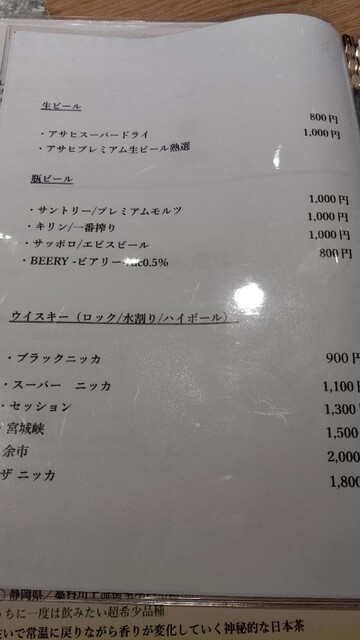 生ビール
・アサヒスーパードライ 800円
・アサヒプレミアム生ビール熟選 1,000円
瓶ビール
・サントリー/プレミアムモルツ 1,000円
・キリン/一番搾り 1,000円
・サッポロ/エビスビール 1,000円
・BEERY -ビアリー 0.5% 800円
ウイスキー（ロック/水割り/ハイボール）
・ブラックニッカ 900円
・スーパー ニッカ 1,100円
・セッション 1,300
・宮城峡 1,500
余市 2,000
ザ ニッカ 1,800
静岡県／藁科川上流
ちに一度は飲みたい超希少品種
いで常温に戻りながら香りが変化していく神秘的な日本茶